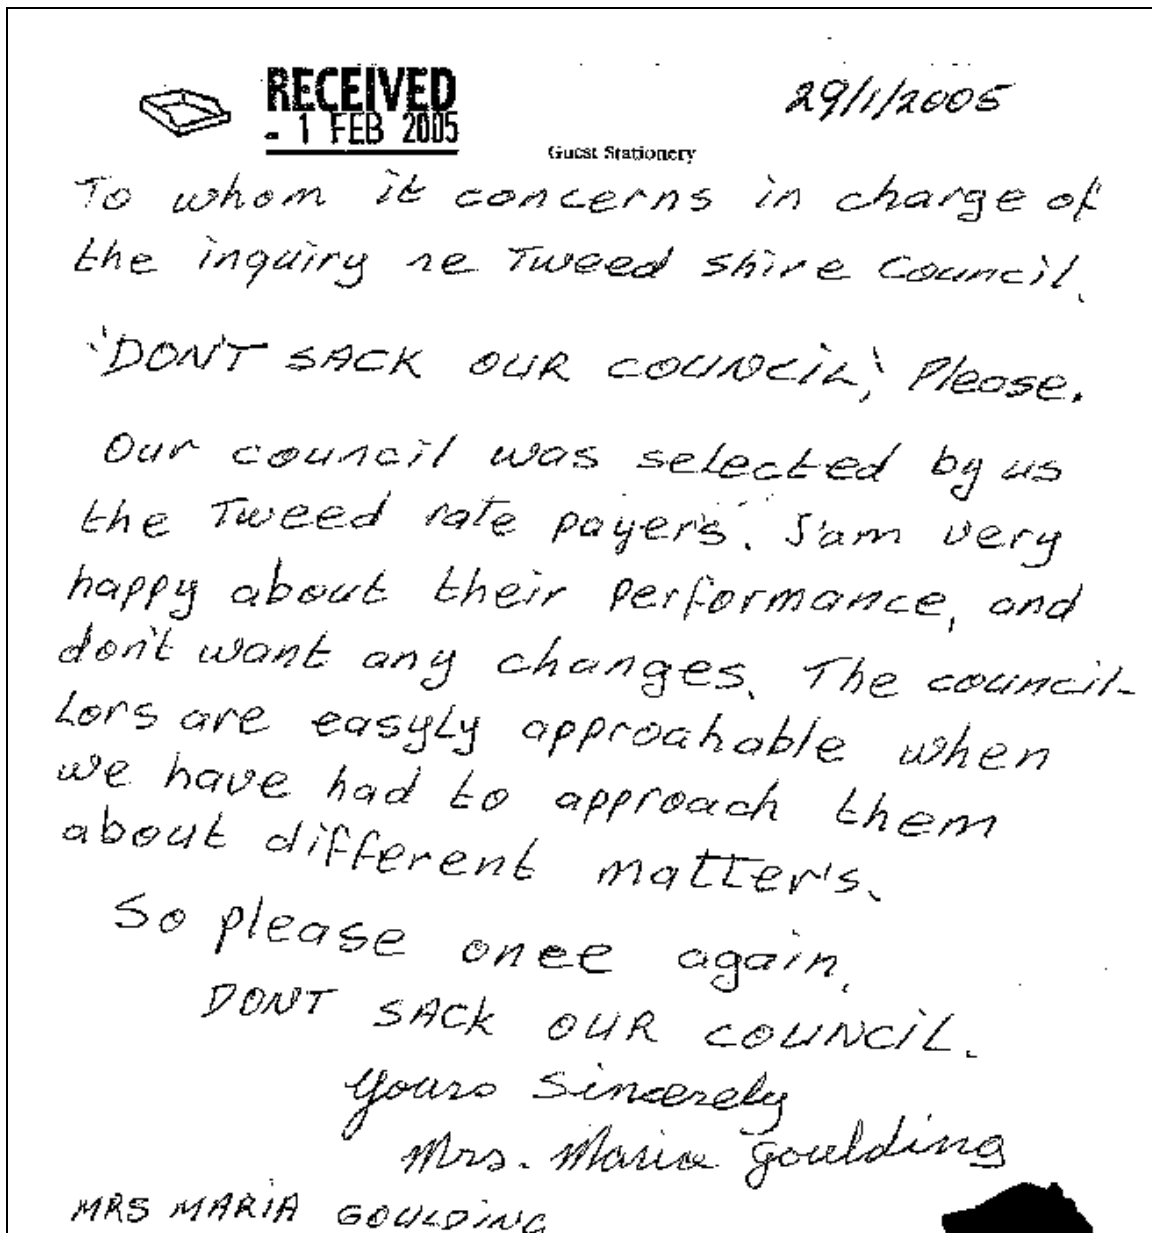 RECEIVED
- 1 FEB 2005
29/1/2005
Guest Stationery
To whom it concerns in charge of
the inquiry re Tweed Shire Council.
'DON'T SACK OUR COUNCIL,' Please.
Our council was selected by us
the Tweed rate payer's. I'am very
happy about their performance, and
don't want any changes. The council-
lors are easyly approahable when
we have had to approach them
about different matter's.
So please once again,
DONT SACK OUR COUNCIL.
Yours Sincerely
Mrs. Maria Goulding
MRS MARIA GOULDING